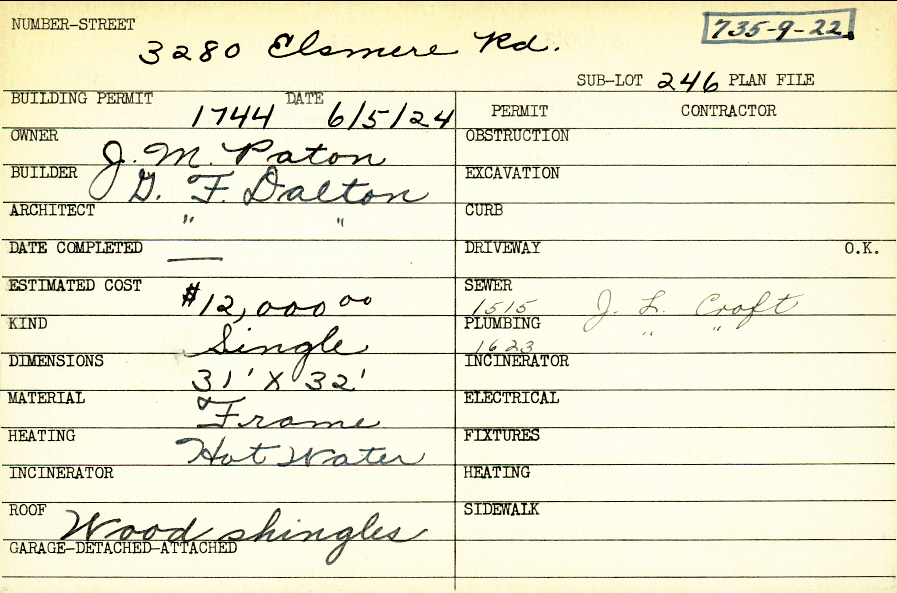 NUMBER-STREET
3280 Elsmere Rd.
735-9-22
SUB-LOT 246 PLAN FILE
BUILDING PERMIT 1744 DATE 6/5/24
OWNER J. M. Paton
BUILDER G. F. Dalton
ARCHITECT " "
DATE COMPLETED —
ESTIMATED COST $12,000 00
KIND Single
DIMENSIONS 31' X 32'
MATERIAL Frame
HEATING Hot Water
INCINERATOR
ROOF Wood shingles
GARAGE-DETACHED-ATTACHED
PERMIT CONTRACTOR
OBSTRUCTION
EXCAVATION
CURB
DRIVEWAY O.K.
SEWER
1515 J. L. Croft
PLUMBING " "
1623
INCINERATOR
ELECTRICAL
FIXTURES
HEATING
SIDEWALK